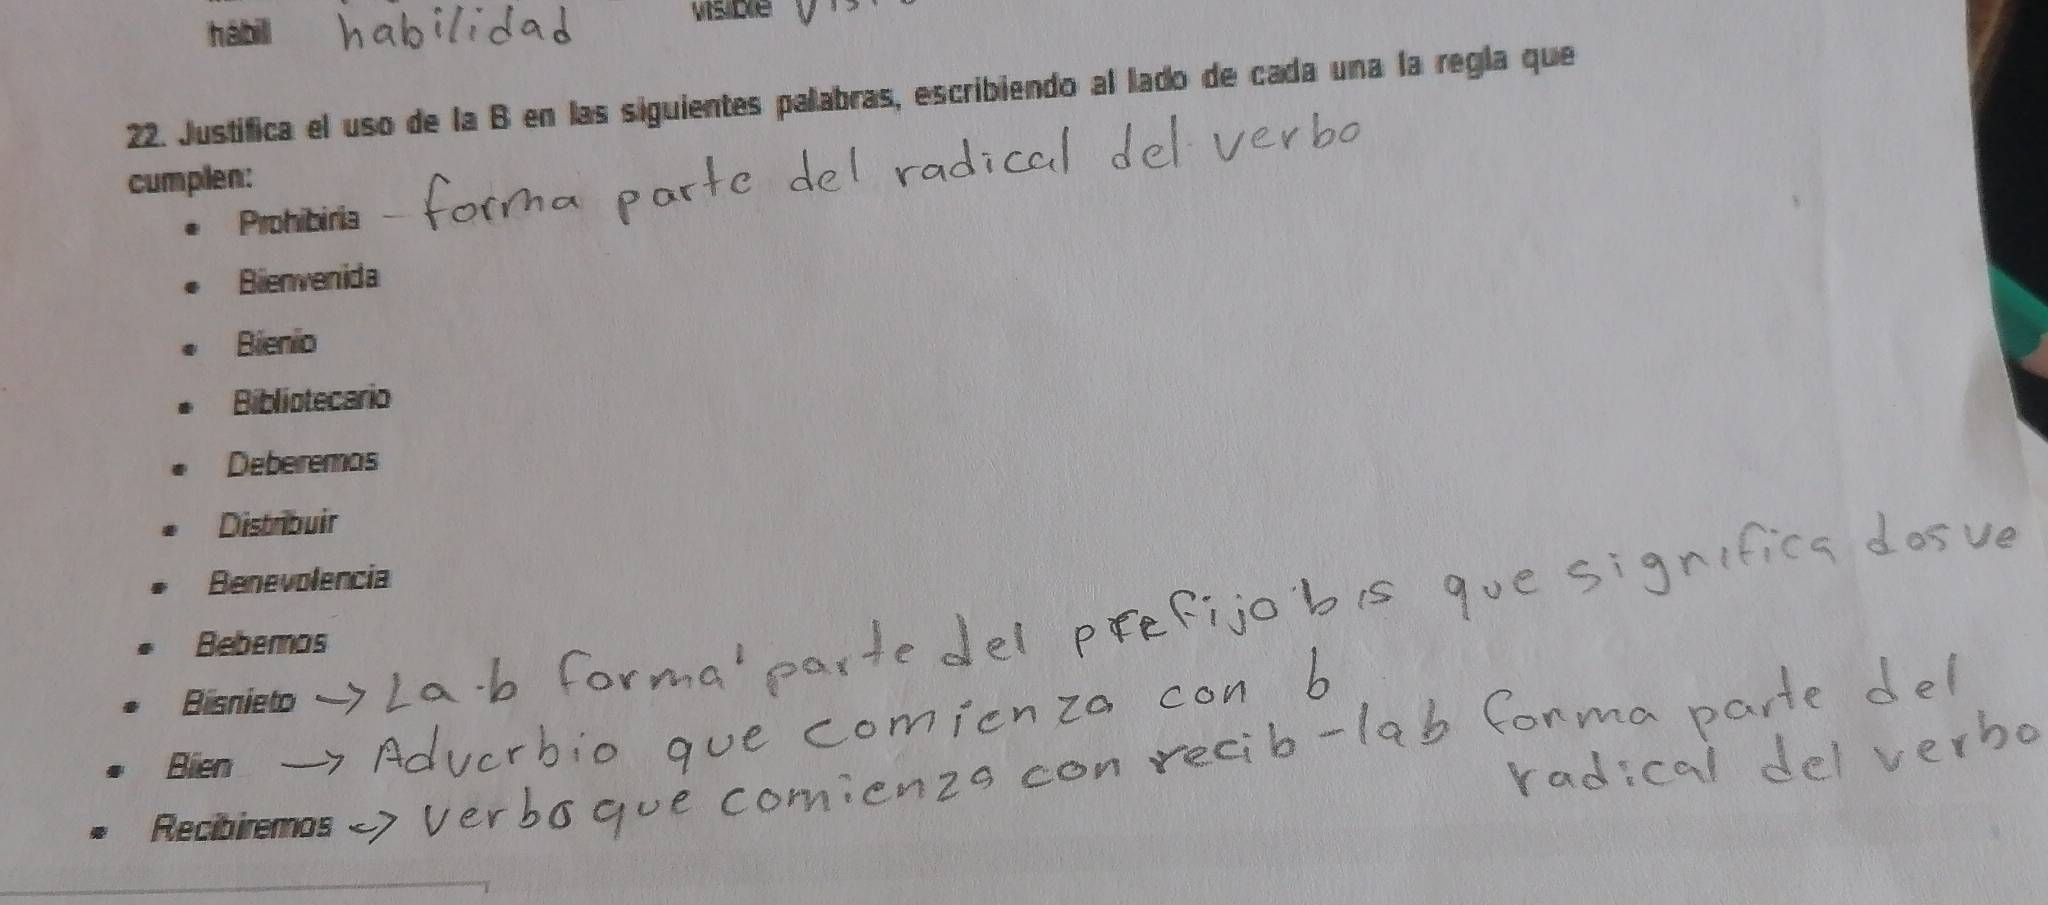 hábil habilidad visible
22. Justifica el uso de la B en las siguientes palabras, escribiendo al lado de cada una la regla que
cumplen:
• Prohibiría - forma parte del radical del verbo
• Bienvenida
• Bienio
• Bibliotecario
• Deberemos
• Distribuir
• Benevolencia
• Bebemos
• Bisnieto → La b forma parte del prefijo bis que significa dos ve
• Bien → Adverbio que comienza con b
• Recibiremos → verbo que comienza con recib - la b forma parte del
radical del verbo